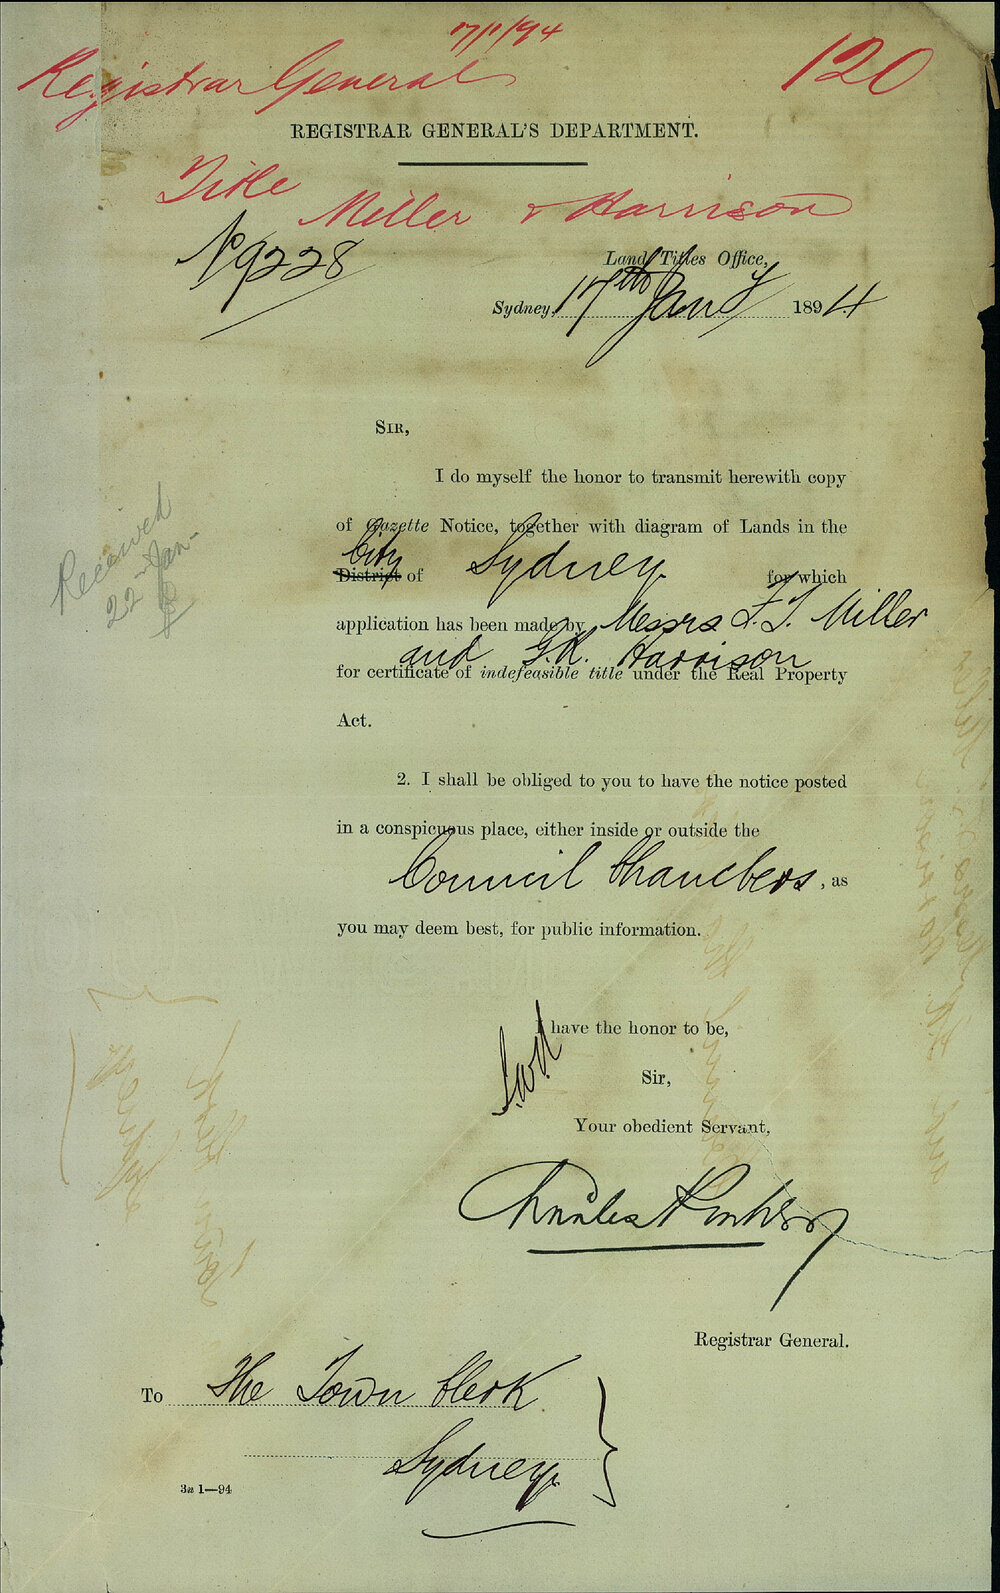 17/1/94
Registrar General
120
REGISTRAR GENERAL'S DEPARTMENT.
Title
Miller & Harrison
No 9228
Land Titles Office,
Sydney, 17th Jany 1894.
SIR,
I do myself the honor to transmit herewith copy
of Gazette Notice, together with diagram of Lands in the
City
District of Sydney for which
application has been made by Messrs F. J. Miller
and G.R. Harrison
for certificate of indefeasible title under the Real Property
Act.
2. I shall be obliged to you to have the notice posted
in a conspicuous place, either inside or outside the
Council Chambers, as
you may deem best, for public information.
Received
22 Jan
I have the honor to be,
Sir,
Your obedient Servant,
Charles
Registrar General.
To The Town Clerk
Sydney.
3n 1—94